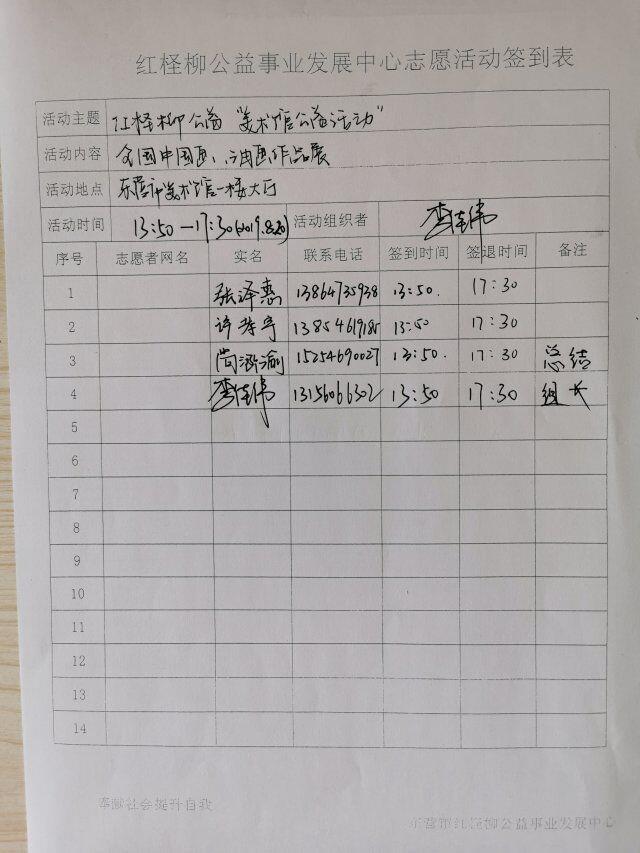 红柽柳公益事业发展中心志愿活动签到表
活动主题 红柽柳公益“美术馆公益活动”
活动内容 全国中国画、油画作品展
活动地点 东营市美术馆一楼大厅
活动时间 13:50—17:30(2019.8.20) 活动组织者 李佳伟
序号 志愿者网名 实名 联系电话 签到时间 签退时间 备注
1 张泽惠 13864735938 13:50. 17:30
2 13854619185 13:50 17:30
3 尚涵渝 15254690027 13:50. 17:30 总结
4 李佳伟 13156066302 13:50 17:30 组长
5
6
7
8
9
10
11
12
13
14
奉献社会提升自我
东营市红柽柳公益事业发展中心